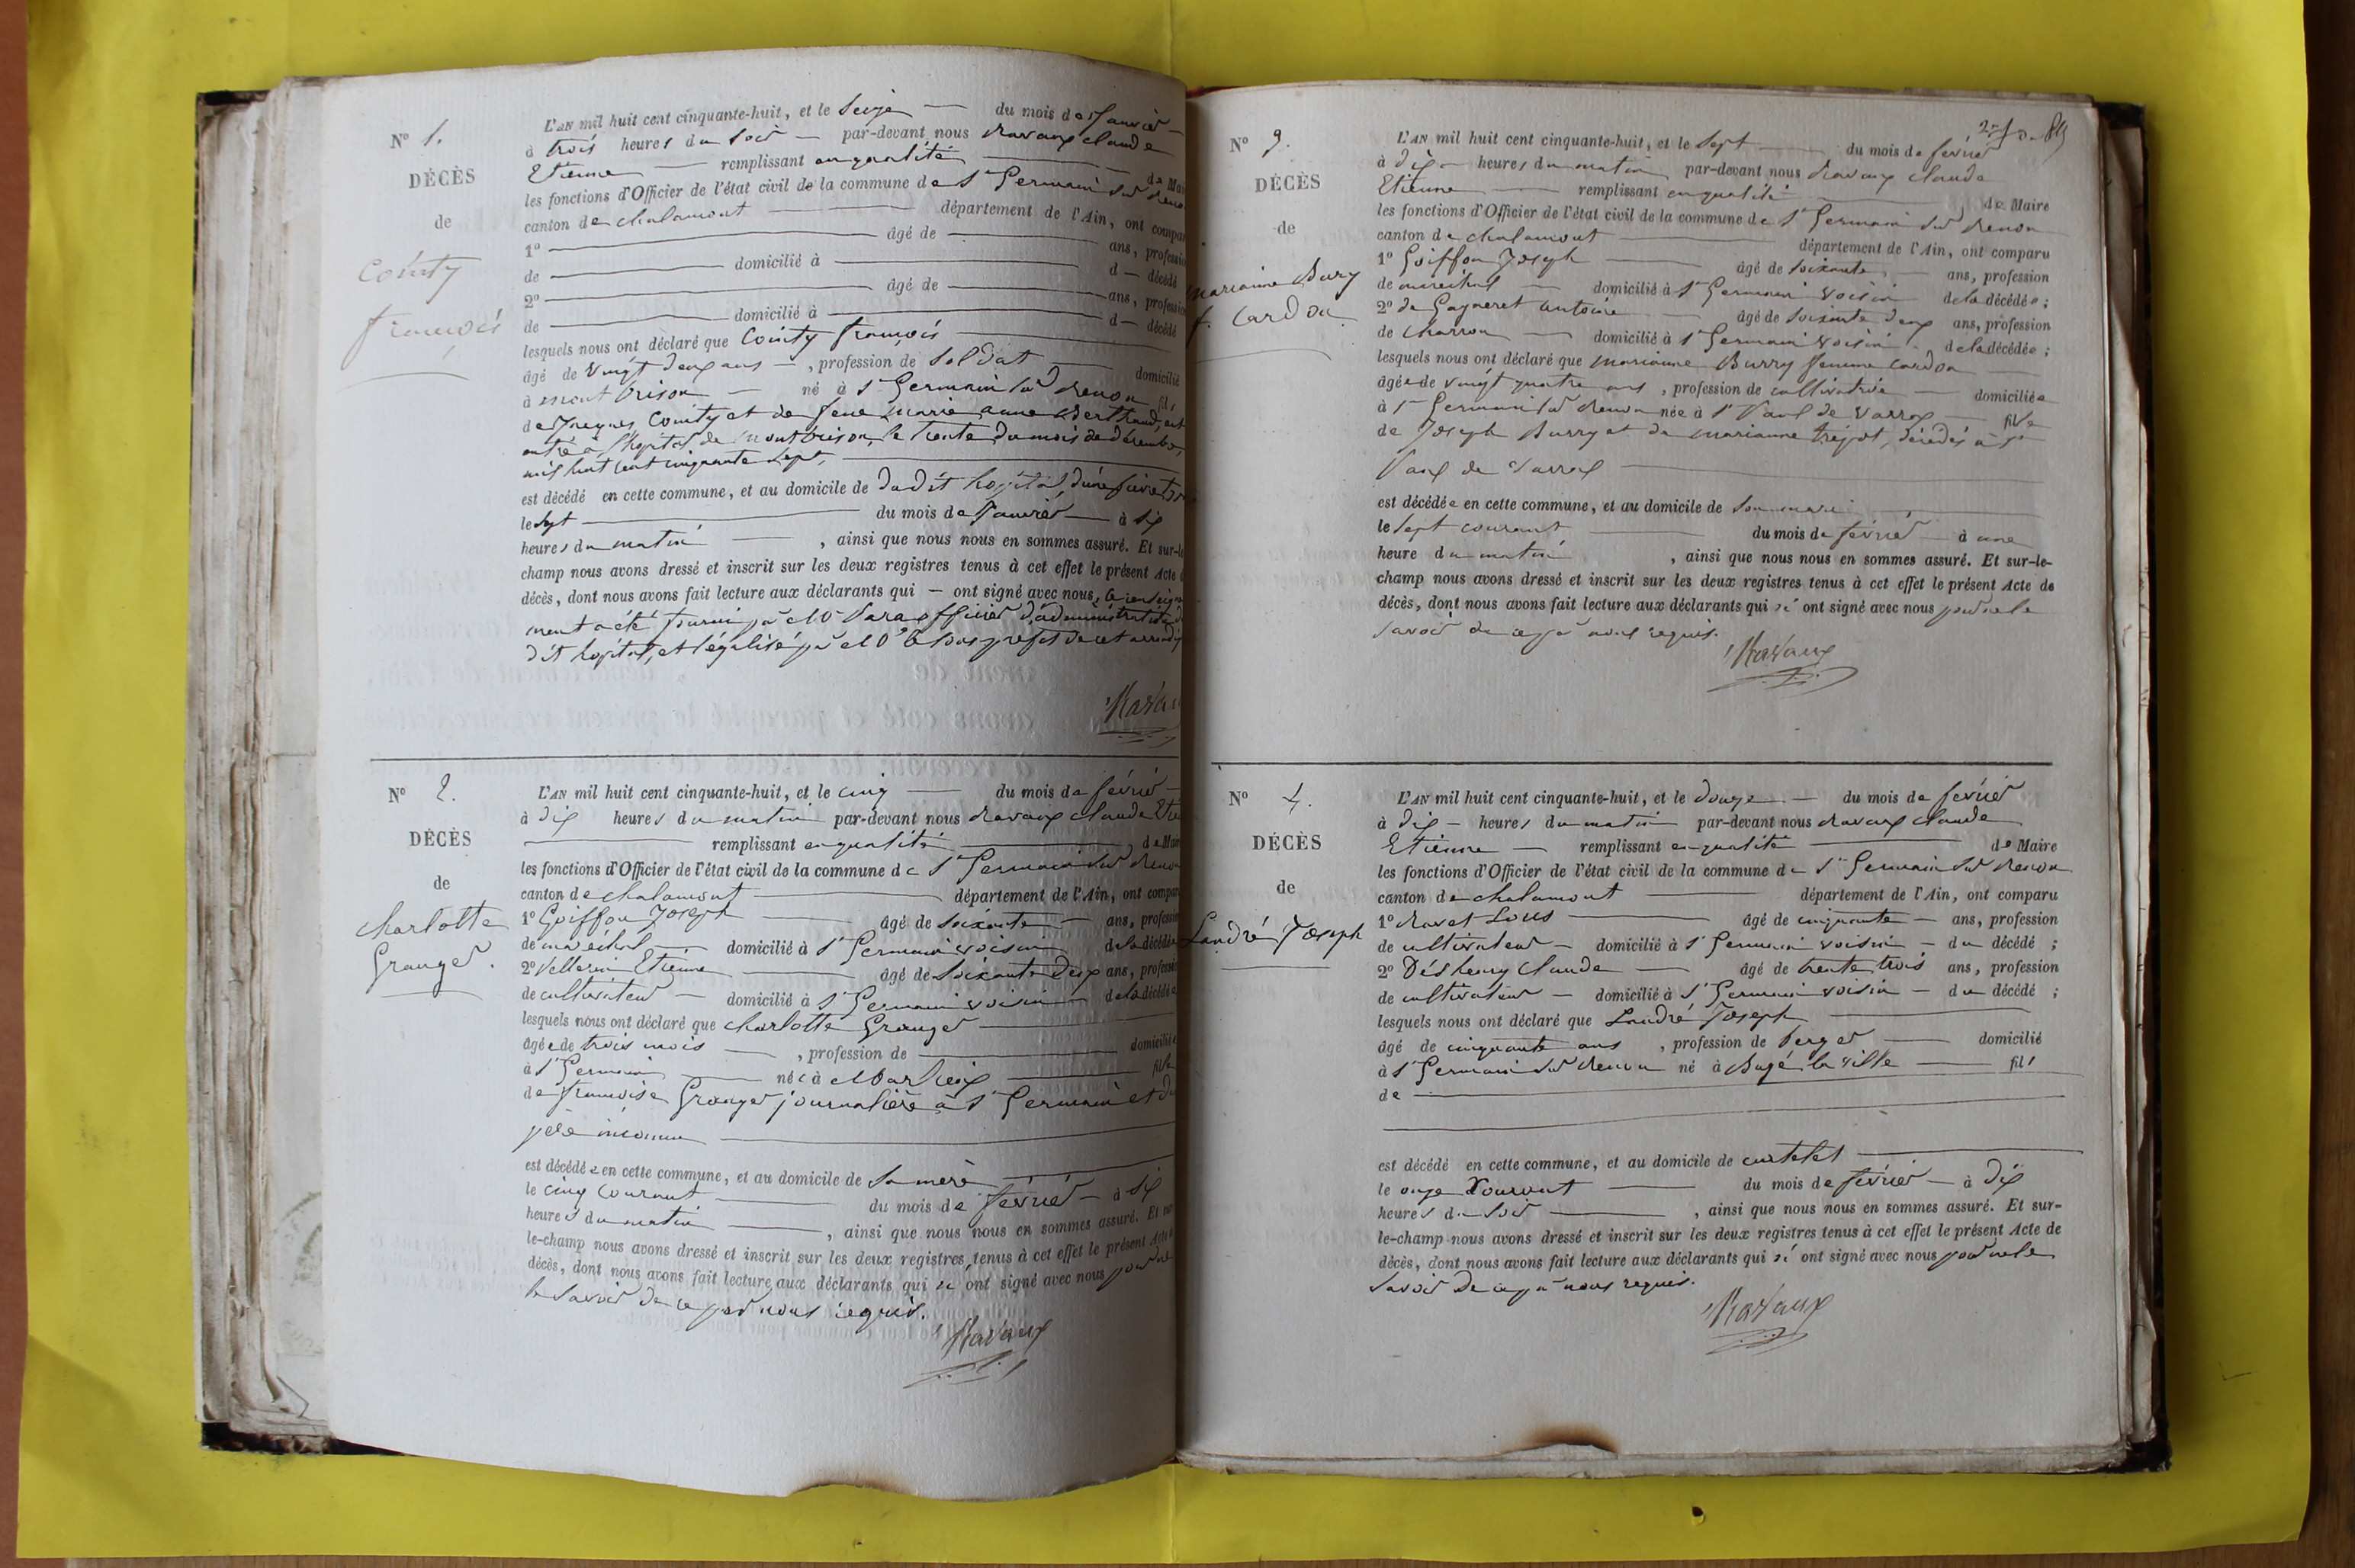 N° 1.
DÉCÈS
de
Cointy
françois
L'AN mil huit cent cinquante-huit, et le Seize — du mois de Janvier —
à trois heures du soir — par-devant nous Ravaux claude
Etienne — remplissant en qualité — de Mai
les fonctions d'Officier de l'état civil de la commune de St Germain sur Renon
canton de chalamont — département de l'Ain, ont compar
1° — âgé de — ans, profession
de — domicilié à — d — décédé
2° — âgé de — ans, profession
de — domicilié à — d — décédé
lesquels nous ont déclaré que Cointy françois —
âgé de vingt deux ans —, profession de Soldat — domicilié
à montbrison — né à St Germain sur Renon fils
de Jacques Cointy et de feue marie anne Berthaud, est
entré à l'hopital de montbrison, le trente du mois de décembre
mil huit cent cinquante sept, —
est décédé en cette commune, et au domicile de dudit hopital d'une fievre
le Sept — du mois de Janvier — à six
heures du matin —, ainsi que nous nous en sommes assuré. Et sur-le
champ nous avons dressé et inscrit sur les deux registres tenus à cet effet le présent Acte
décès, dont nous avons fait lecture aux déclarants qui — ont signé avec nous, le renseigne
ment a été fourni par Mr officier d'administration
dit hopital, et légalisé par Mr le sous prefet de cet arrondis
Ravau
N° 2.
DÉCÈS
de
Charlotte
Granger.
L'AN mil huit cent cinquante-huit, et le cinq — du mois de février —
à dix heures du matin par-devant nous Ravaux claude Eti
— remplissant en qualité — de Mair
les fonctions d'Officier de l'état civil de la commune de St Germain sur Renon
canton de chalamont — département de l'Ain, ont compar
1° Goiffon Joseph — âgé de soixante — ans, profession
de maréchal — domicilié à St Germain voisin de la décédée
2° Vellerin Etienne — âgé de soixante deux ans, profession
de cultivateur — domicilié à St Germain voisin — de la décédée
lesquels nous ont déclaré que charlotte Granger —
âgée de trois mois —, profession de — domiciliée
à St Germain — née à Marlieux — fille
de françoise Granger journalière à St Germain et du
père inconnu —
est décédée en cette commune, et au domicile de Sa mère —
le cinq courant — du mois de février — à six
heures du matin —, ainsi que nous nous en sommes assuré. Et sur
le-champ nous avons dressé et inscrit sur les deux registres tenus à cet effet le présent Acte
décès, dont nous avons fait lecture aux déclarants qui n' ont signé avec nous pour ne
le savoir de ce par nous requis.
Ravaux
N° 3.
DÉCÈS
de
marianne Bury
f. Cardon
L'AN mil huit cent cinquante-huit, et le Sept — du mois de février
à dix — heures du matin par-devant nous Ravaux claude
Etienne — remplissant en qualité — de Maire
les fonctions d'Officier de l'état civil de la commune de St Germain sur Renon
canton de chalamont — département de l'Ain, ont comparu
1° Goiffon Joseph — âgé de soixante — ans, profession
de maréchal — domicilié à St Germain voisin de la décédée ;
2° de Gagneret antoine — âgé de soixante deux ans, profession
de charron — domicilié à St Germain voisin — de la décédée ;
lesquels nous ont déclaré que marianne Burry femme Cardon —
âgée de vingt quatre ans, profession de cultivatrice — domiciliée
à St Germain sur Renon née à St Paul de Varrax — fille
de Joseph Burry et de marianne trejot, décédés à St
Paul de Varrax —
est décédée en cette commune, et au domicile de son mari —
le Sept courant — du mois de février — à une
heure du matin, ainsi que nous nous en sommes assuré. Et sur-le-
champ nous avons dressé et inscrit sur les deux registres tenus à cet effet le présent Acte de
décès, dont nous avons fait lecture aux déclarants qui n' ont signé avec nous pour ne le
savoir de ce par nous requis.
Ravaux
N° 4.
DÉCÈS
de
Landré Joseph
L'AN mil huit cent cinquante-huit, et le douze — du mois de février
à dix — heures du matin par-devant nous Ravaux claude
Etienne — remplissant en qualité — de Maire
les fonctions d'Officier de l'état civil de la commune de St Germain sur Renon
canton de chalamont — département de l'Ain, ont comparu
1° Ravet Louis — âgé de cinquante — ans, profession
de cultivateur — domicilié à St Germain voisin — du décédé ;
2° Déshenry Claude — âgé de trente trois ans, profession
de cultivateur — domicilié à St Germain voisin — du décédé ;
lesquels nous ont déclaré que Landré Joseph —
âgé de cinquante ans, profession de berger — domicilié
à St Germain sur Renon né à Bagé la ville — fils
de —
est décédé en cette commune, et au domicile de curtelet —
le onze courant — du mois de février — à dix
heures du soir —, ainsi que nous nous en sommes assuré. Et sur-
le-champ nous avons dressé et inscrit sur les deux registres tenus à cet effet le présent Acte de
décès, dont nous avons fait lecture aux déclarants qui n' ont signé avec nous pour ne le
savoir de ce par nous requis.
Ravaux